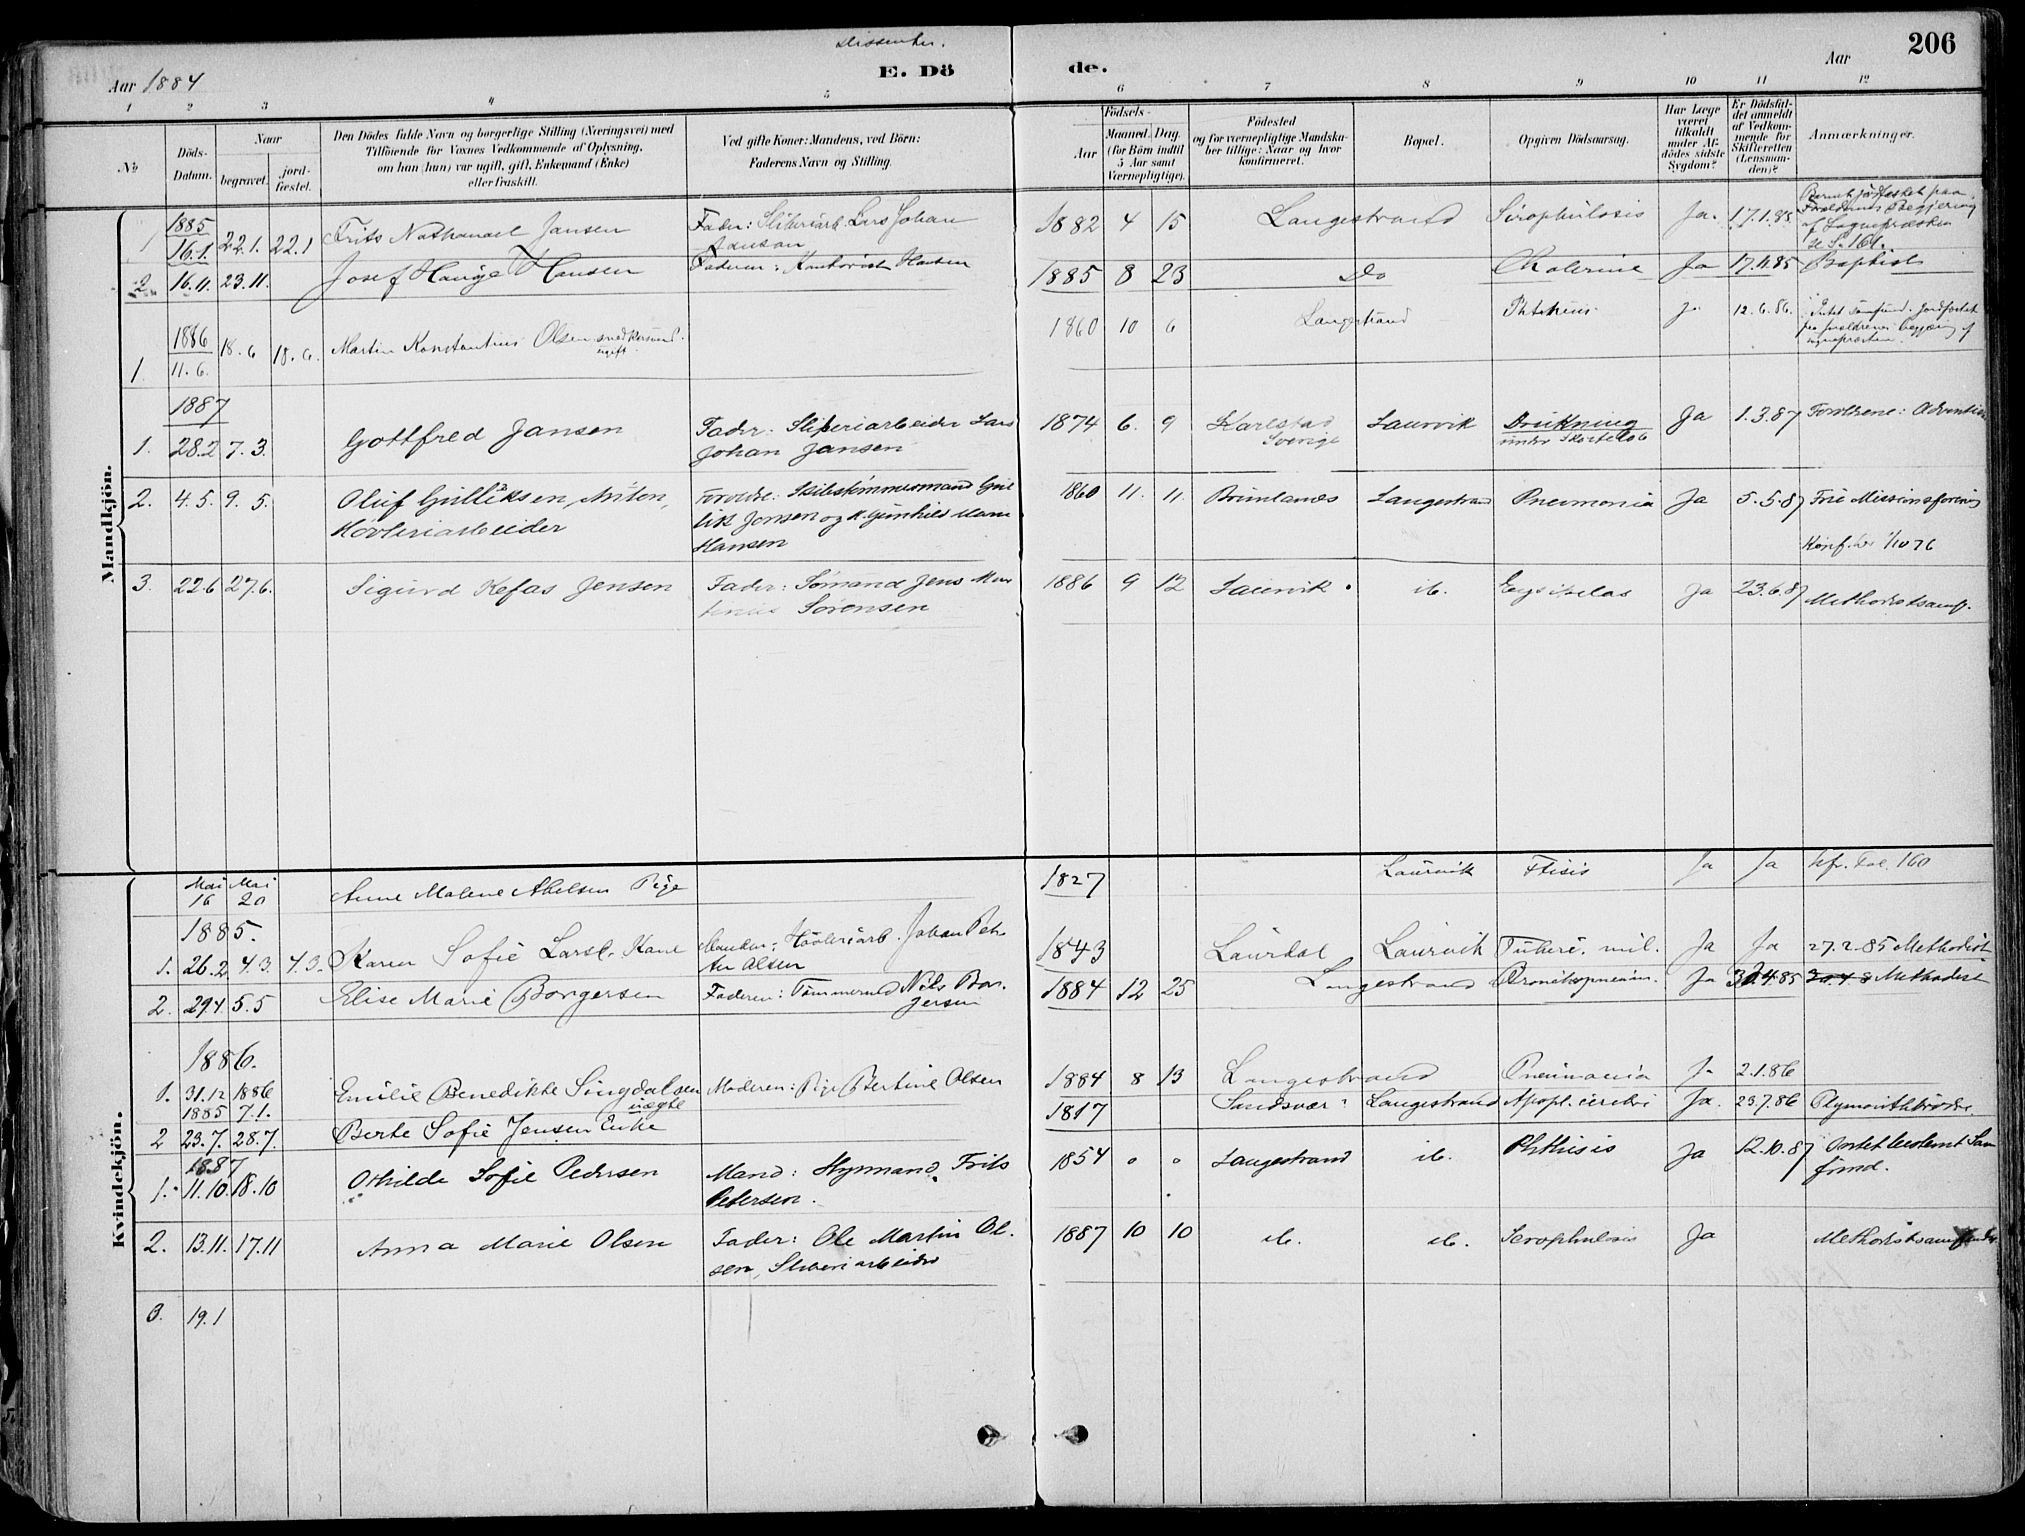 Dissenter.
206
Aar 1884
E. Dö
de.
Aar
1 2 3 4 5 6 7 8 9 10 11 12
No
Döds-Datum.
Naar
begravet.
jord-fæstet.
Den Dödes fulde Navn og borgerlige Stilling (Næringsvei) med
Tilföiende for Voxnes Vedkommende af Oplysning,
om han (hun) var ugift, gift, Enkemand (Enke)
eller fraskilt.
Ved gifte Koner: Mandens, ved Börn:
Faderens Navn og Stilling.
Födsels-
Aar
Maaned. Dag.
(for Börn indtil
5 Aar samt
Værnepligtige).
Födested
og for værnepligtige Mandska-
ber tillige: Naar og hvor
konfirmeret.
Bopæl.
Opgiven Dödsaarsag.
Har Læge
været
tilkaldt
under Af-
dödes sidste
Sygdom?
Er Dödsfal-
det anmeldt
af Vedkom-
mende for
Skifteretten
(Lensman-
den)?
Anmærkninger.
Mandkjön.
1885
1 16.1. 22.1. 22.1 Frits Nathanael Jansen Fader: Sliberiarb. Lars Johan Jansen 1882 4 15 Langestrand Scrophulosis Ja. 17.1.85 se S. 161.
2 16.11. 23.11. Josef Hauge Hansen Faderen: Hansen 1885 8 23 Do Cholerine Ja 17.11.85 Baptist
1886
1. 11.6. 18.6 18.6. Martin Konstantius Olsen snedkersvend. ugift. 1860 10 6 Langestrand Phthisis Ja 12.6.86.
1887
1. 28.2 7.3. Gottfred Jansen Fader: Sliperiarbeider Lars Johan Jansen 1874 6. 9 Karlstad Sverige Laurvik Drukning under Skøiteløb Ja 1.3.87 Forældrene: Adventister
2. 4.5. 9.5. Oluf Gulliksen, Anton, Høvleriarbeider Forældre: Skibstømmermand Gullik Jonsen og K. Gunhild Marie Hansen 1860 11. 11. Brunlanes Langestrand Pneumonia Ja 5.5.87 Frie Missionsforening
Konf. 1/10 76
3. 22.6 27.6. Sigurd Kefas Jensen Fader: Sømand Jens Martinius Sørensen 1886 9 12 Laurvik ib. Erysipelas Ja 23.6.87 Methodistsamf.
Kvindekjön.
Mai 16 Mai 20 Anne Malene Abelsen Pige 1827 Laurvik Ftisis Ja Ja kfr. Fol. 160
1885.
1. 26.2 4.3. 4.3. Karen Sofie Larsd. Kone Manden: Høvleriarb. Johan Petter Olsen 1843 Laurdal Laurvik Tuberc. mil. Ja Ja 27.2.85 Methodist
2. 29.4. 5.5 Elise Marie Borgersen Faderen: Tømmermd Nils Borgersen 1884 12 25 Langestrand Bronkopneum. Ja 30.4.85 30.4.8 Methodist
1886.
1. 31.12 1885 1886 7.1. Emilie Benedikte Singdalsen uægte Moderen: Pige Bertine Olsen 1884 8 13 Langestrand Pneumonia Ja 2.1.86
2 23.7. 28.7. Berte Sofie Jensen Enke 1817 Sandsvær Langestrand Apopl. cerebri Ja. 23.7.86 Plymouthbrødre
1887
1. 11.10. 18.10 Othilde Sofie Pedersen Mand: Hyrmand Frits Pedersen. 1854 Langestrand ib. Phthisis Ja 12.10.87 Intet bestemt Samfund.
2. 13.11. 17.11 Anna Marie Olsen Fader: Ole Martin Olsen, Sliberiarbeider 1887 10 10 ib. ib. Scrophulosis Ja Methodistsamfundet
3. 19.1